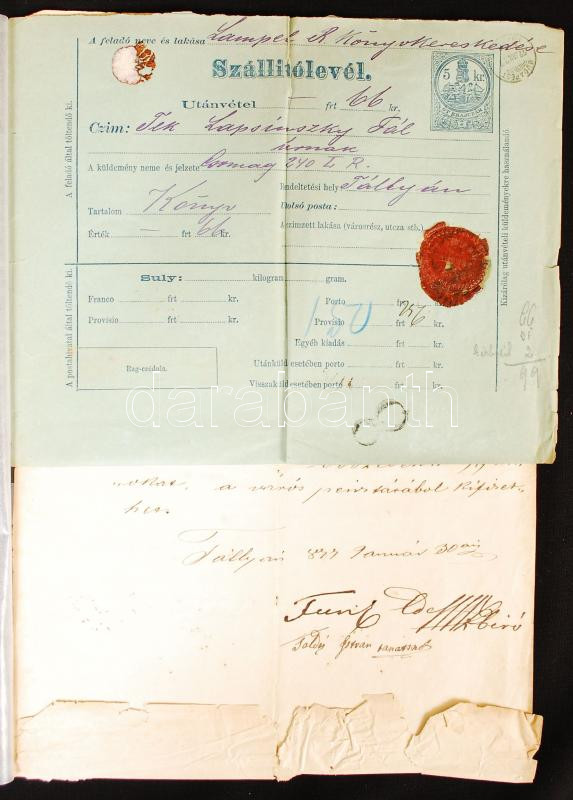 A feladó neve és lakása Lampel R. Könyvkereskedése
Szállitólevél.
5 kr.
Utánvétel — frt 66 kr.
Czim: Tek Lapsinszky Pál
úrnak
A küldemény neme és jelzete Csomag 240 L. R.
Rendeltetési hely Tállyán
Utolsó posta:
Tartalom Könyv
A czimzett lakása (városrész, utcza stb.)
Érték — frt 66 kr.
A feladó által töltendő ki.
Kizárólag utánvételi küldeményekre használandó
Suly: kilogram, gram.
Franco frt kr. Porto frt kr.
Provisio frt kr. Provisio frt kr.
Egyéb kiadás frt kr.
Utánküld esetében porto frt kr.
Visszaküld esetében porto frt kr.
Rag-czédula.
A postahivatal által töltendő ki.
66
2
99
darabanth
a város pénztárából kifizet-
Tállyán 877 Január 30án
biró
István tanácsnok